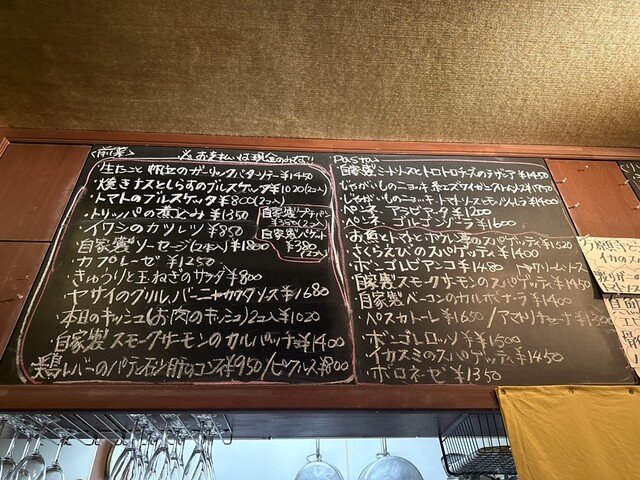 <前菜>
※お支払いは現金のみです!!
生たこと帆立のガーリックバターソテー¥1450
焼きナスとしらすのブルスケッタ¥1020(2コ入)
トマトのブルスケッタ¥800(2コ入)
トリッパの煮こみ¥1350
イワシのカツレツ¥850
自家製ソーセージ(2本入)¥1800
カプレーゼ¥1250
きゅうりと玉ねぎのサラダ¥800
ヤサイのグリル、バーニャカウダソース¥1680
本日のキッシュ(お肉のキッシュ)2コ入¥1020
自家製スモークサーモンのカルパッチョ¥1400
鶏レバーのパテ ¥950/ピクルス¥800
自家製プチパン
¥350(2コ入)
自家製バゲット
¥380
(2コ入)
Pasta
自家製ミートソースとトロトロナスのラザニア¥1450
じゃがいものニョッキ
じゃがいものニョッキ トマトソース ¥1400
ペンネ アラビアータ¥1200
ペンネ ゴルゴンゾーラ¥1600
お魚とトマトと のスパゲッティ¥1520
さくらえびのスパゲッティ¥1400
ボンゴレビアンコ¥1480
自家製スモークサーモンのスパゲッティ¥1450
自家製ベーコンのカルボナーラ¥1400
ペスカトーレ¥1650/アマトリチャーナ
ボンゴレロッソ¥1500
イカスミのスパゲッティ¥1450
ボロネーゼ¥1350